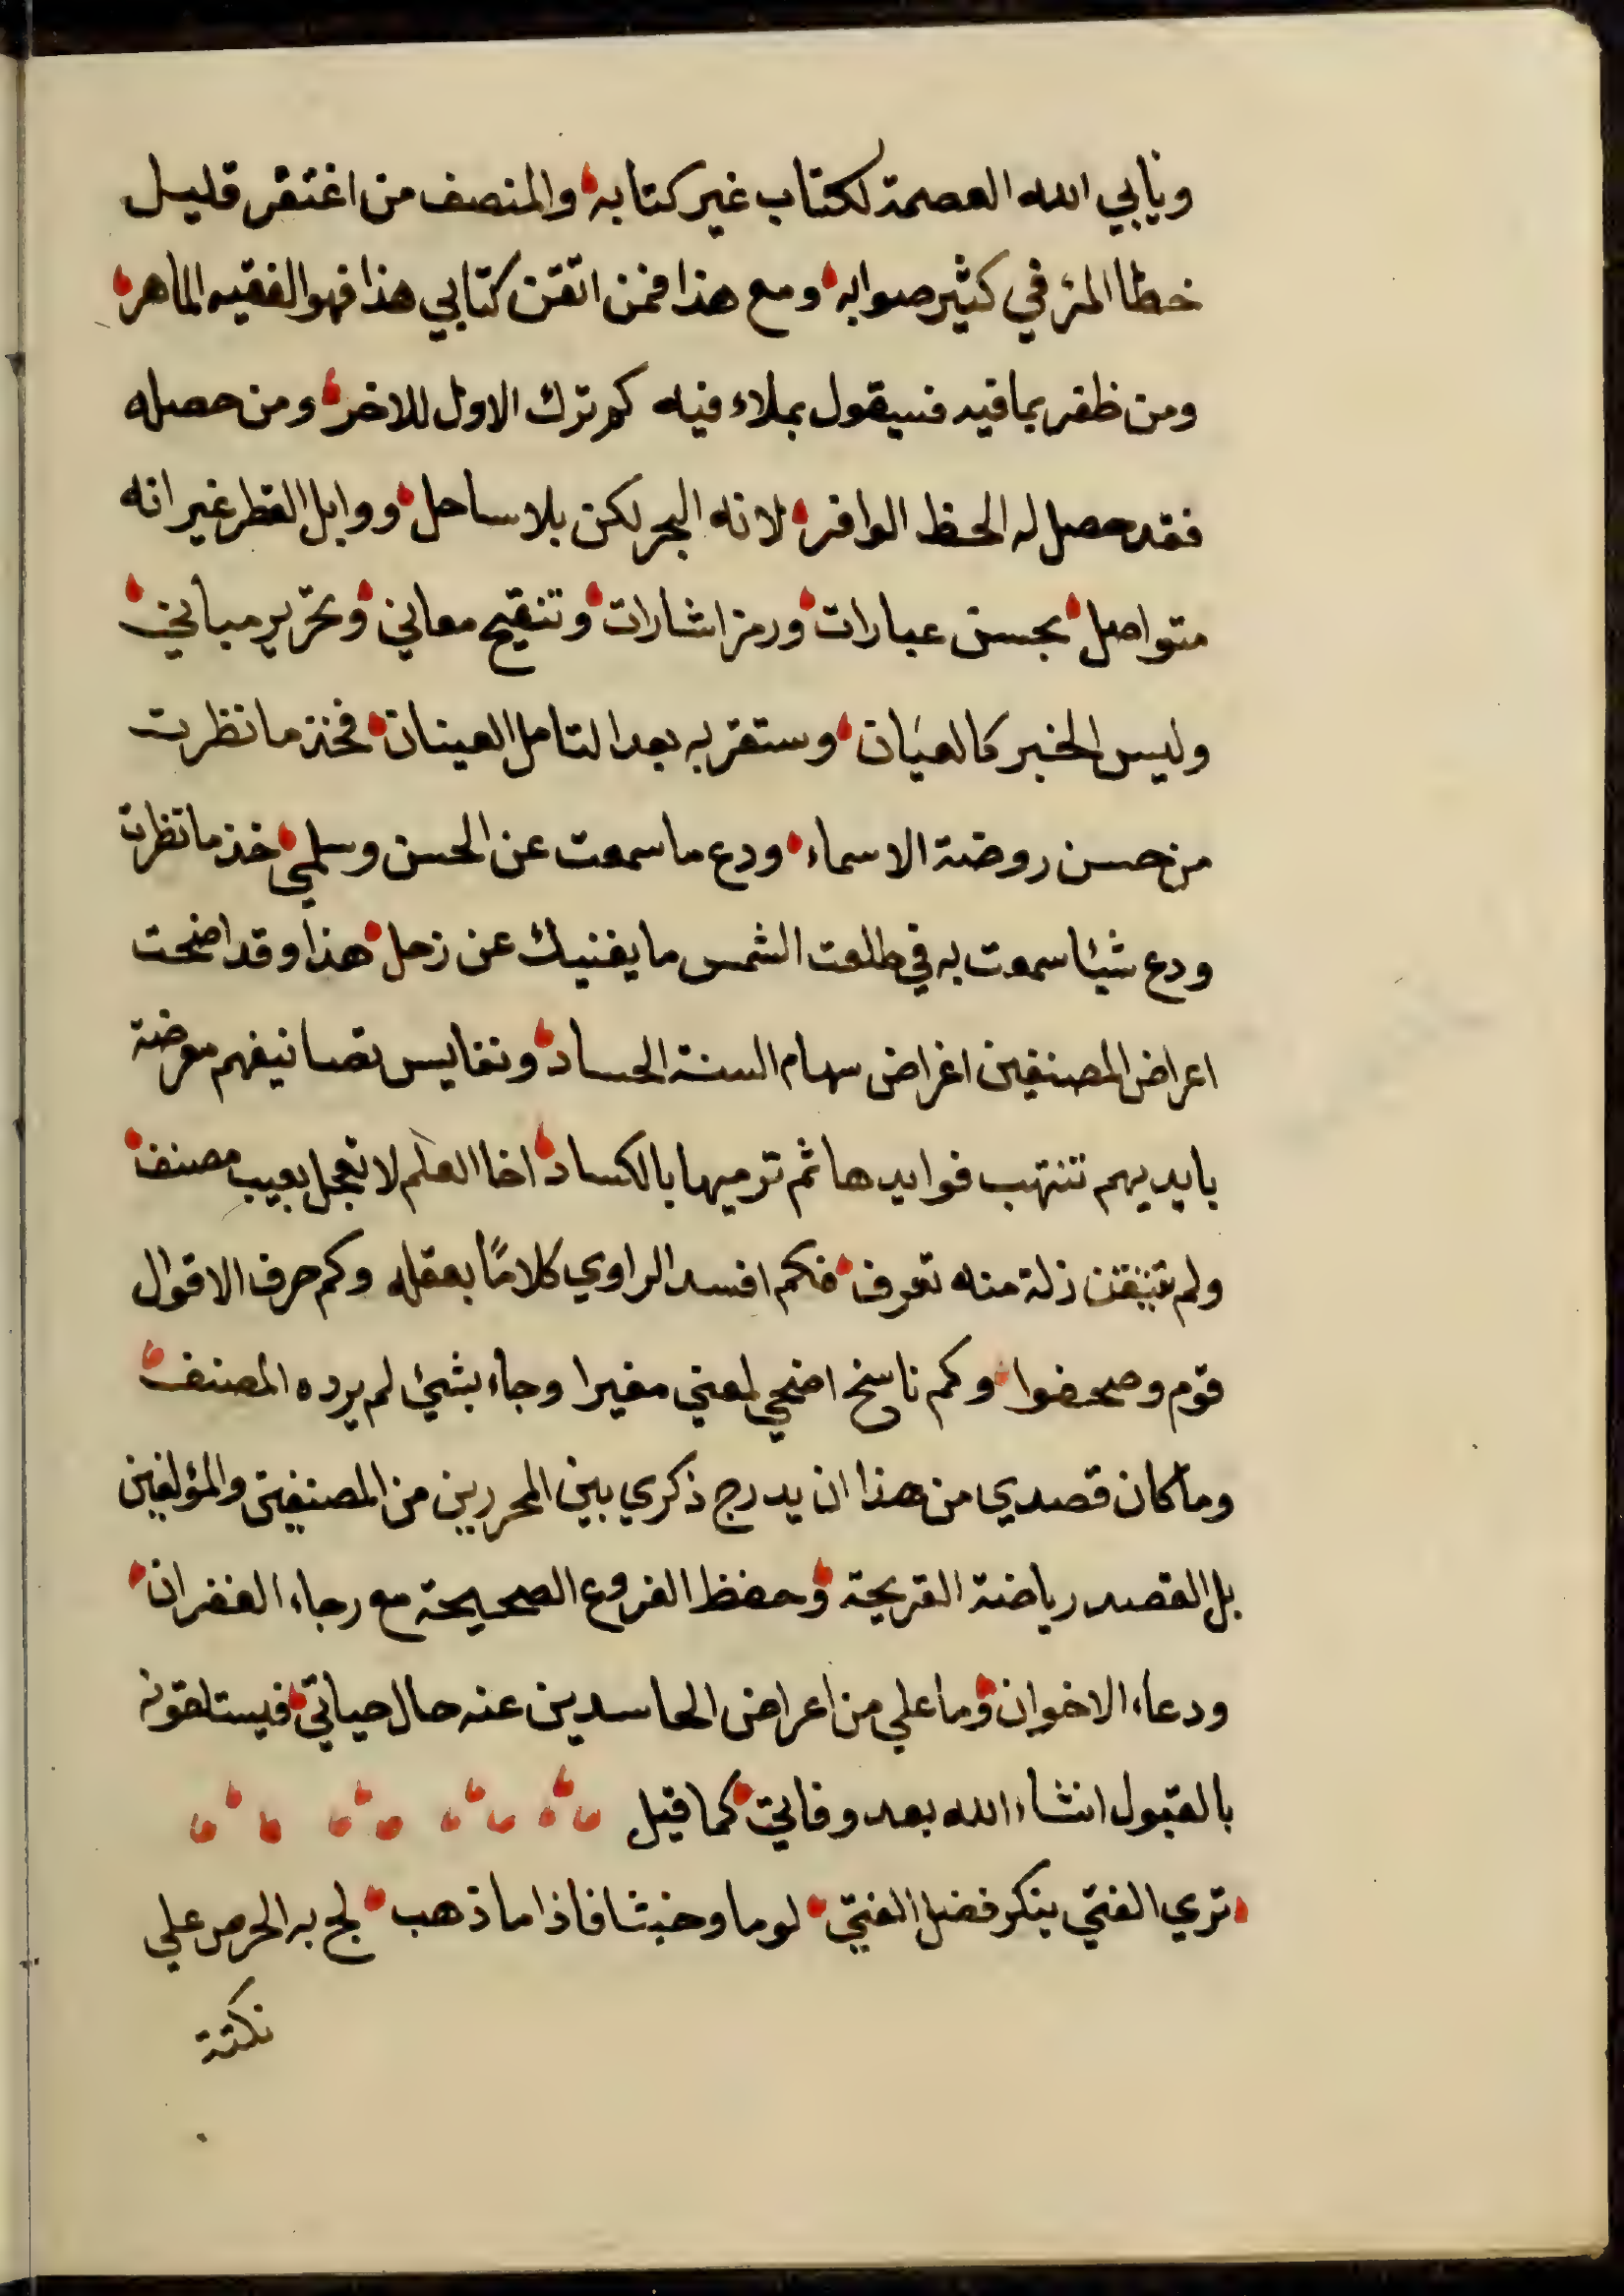 ويابي الله العصمة لكتاب غير كتابه والمنصف من اغتفر قليل
خطا المرء في كثير صوابه ومع هذا فمن اتقن كتابي هذا فهو الفقيه الماهر
ومن ظفر بما فيه فسيقول بملاء فيه كم ترك الاول للاخر ومن حصله
فقد حصل له الحظ الوافر لانه البحر لكن بلا ساحل ووابل القطر غير انه
متواصل بحسن عبارات ورمز اشارات وتنقيح معاني وتحرير مباني
وليس الخبر كالعيان وستقر به بعد التامل العينان فخذ ما نظرت
من حسن روضة الاسماء ودع ما سمعت عن الحسن وسلمي خذ ما نظرت
ودع شيئا سمعت به في طلعت الشمس ما يغنيك عن زحل هذا وقد اضحت
اعراض المصنفين اغراض سهام السنة الحساد ونفايس تصانيفهم معرضة
بايديهم تنتهب فوايدها ثم ترميها بالكساد اخا العلم لا تعجل بعيب مصنف
ولم تتيقن زلة منه تعرف فكم افسد الراوي كلامًا بعقله وكم حرف الاقوال
قوم وصحفوا وكم ناسخ اضحي لمعني مغيرا وجاء بشيئ لم يرده المصنف
وما كان قصدي من هذا ان يدرج ذكري بين المحررين من المصنفين والمؤلفين
بل القصد رياضة القريحة وحفظ الفروع الصحيحة مع رجاء الغفران
ودعاء الاخوان وما علي من اعراض الحاسدين عنه حال حياتي فيستلقونه
بالقبول انشاء الله بعد وفاتي كما قيل
تري الفتي ينكر فضل الفتي لوما وخبثا فاذا ما ذهب لج به الحرص علي
نكتة